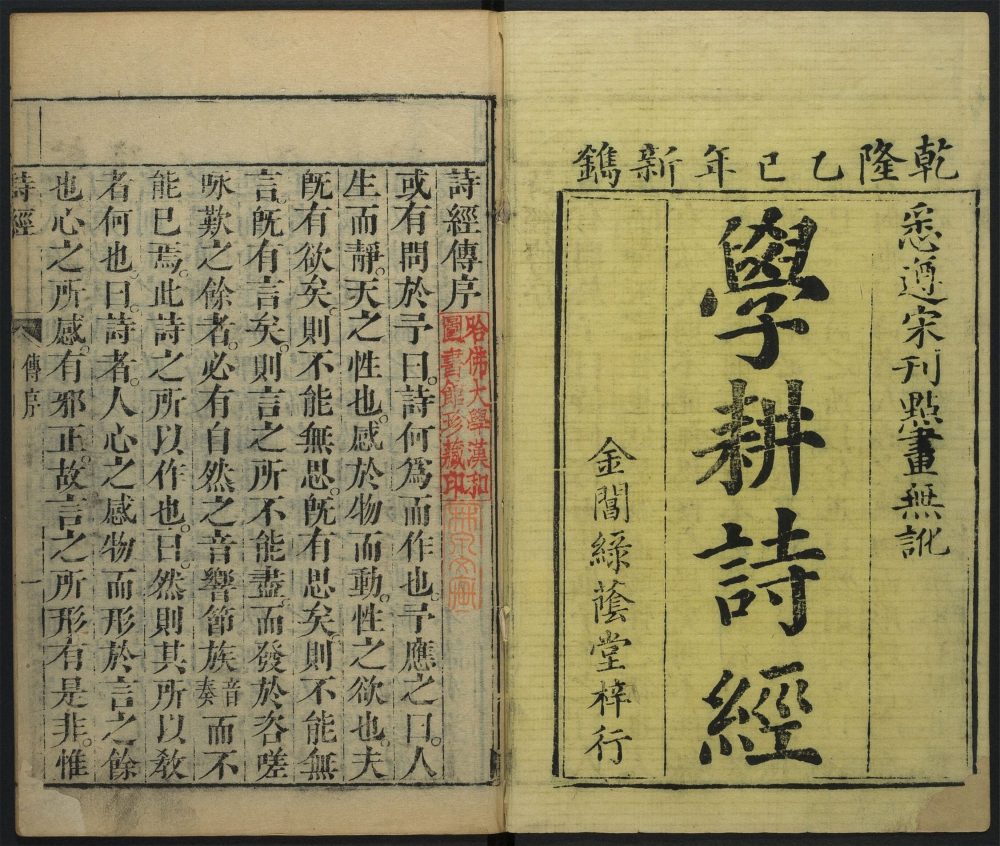 乾隆乙巳年新鐫
悉遵宋刊點畫無訛
學耕詩經
金閶綠蔭堂梓行
詩經傳序
哈佛大學漢和
圖書館珍藏印
或有問於予曰。詩何爲而作也。予應之曰。人
生而靜。天之性也。感於物而動。性之欲也。夫
旣有欲矣。則不能無思。旣有思矣。則不能無
言。旣有言矣。則言之所不能盡。而發於咨嗟
咏歎之餘者。必有自然之音響節族音奏而不
能已焉。此詩之所以作也。曰。然則其所以敎
者何也。曰。詩者。人心之感物而形於言之餘
也心之所感。有邪正。故言之所形有是非。惟
詩經
傳序
一